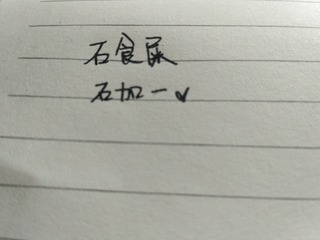 石食屎
石加一✓